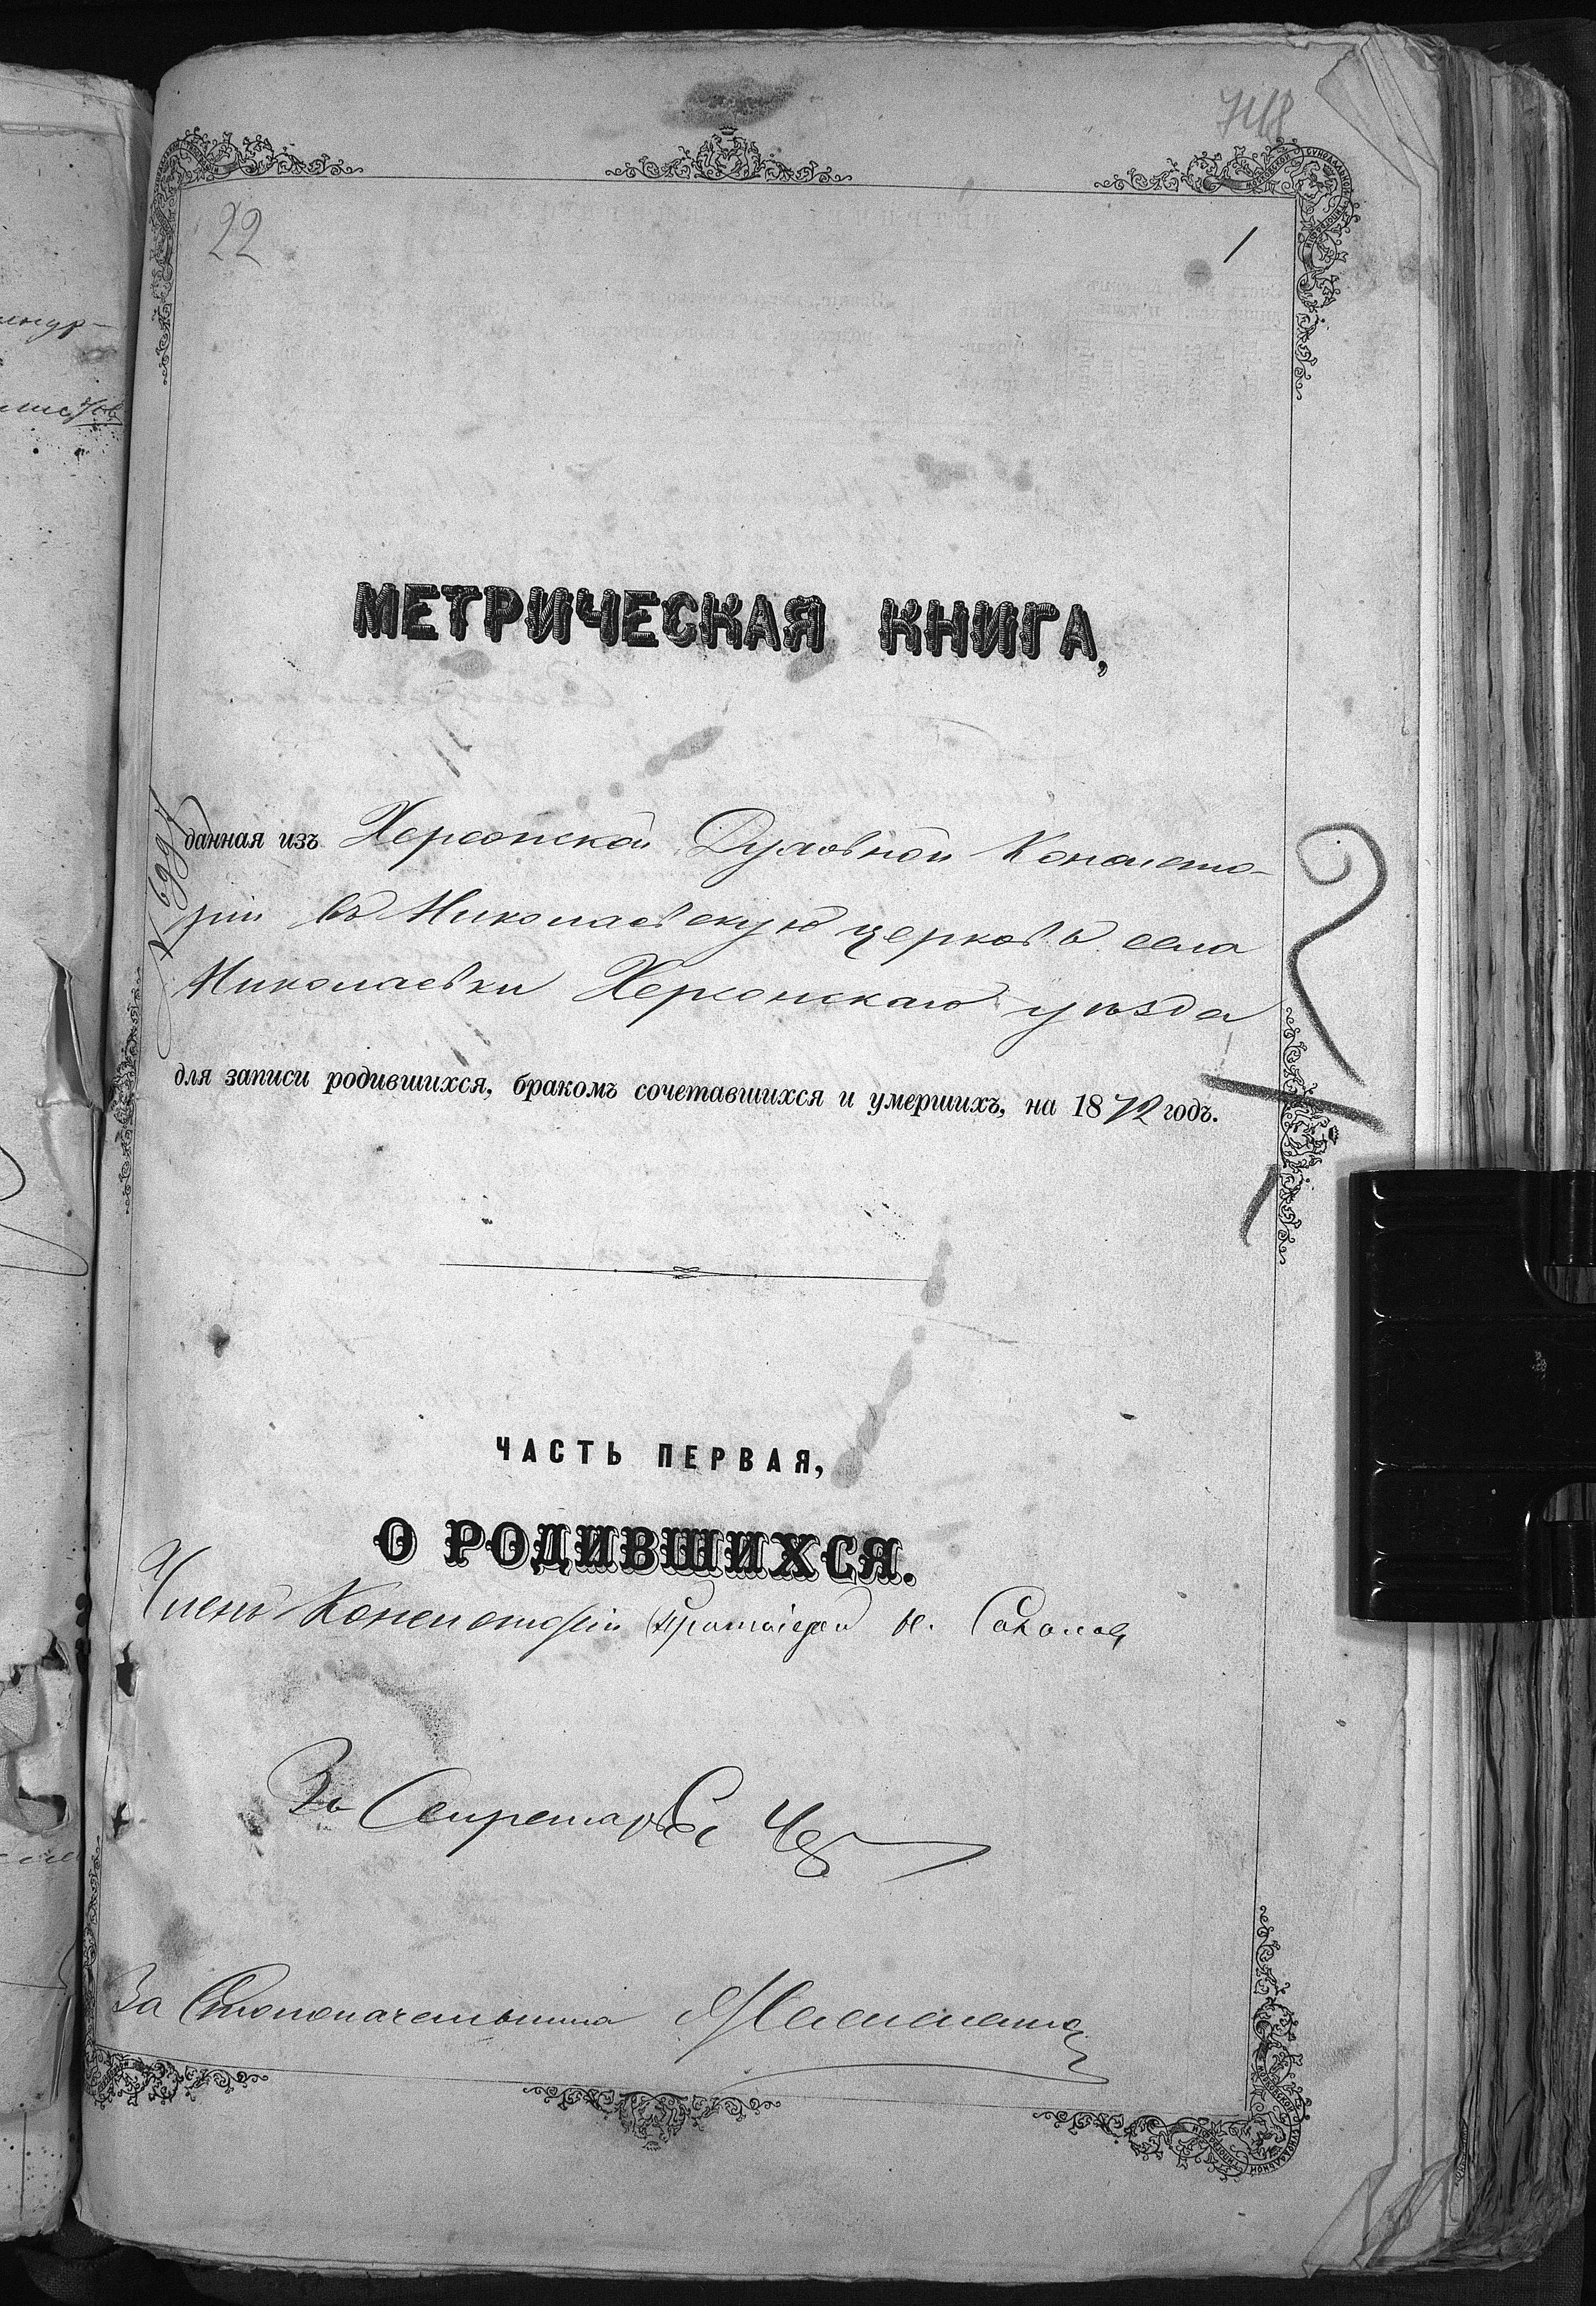 748
22
1
МЕТРИЧЕСКАЯ КНИГА,
данная изъ Херсонской Духовной Консисто-
ріи въ Николаевскую церковь села
Николаевки Херсонскаго уѣзда
для записи родившихся, бракомъ сочетавшихся и умершихъ, на 1872 годъ.
ЧАСТЬ ПЕРВАЯ,
О РОДИВШИХСЯ.
Членъ Консисторіи Протоіерей Соколов
За Секретаря
За Столоначальника